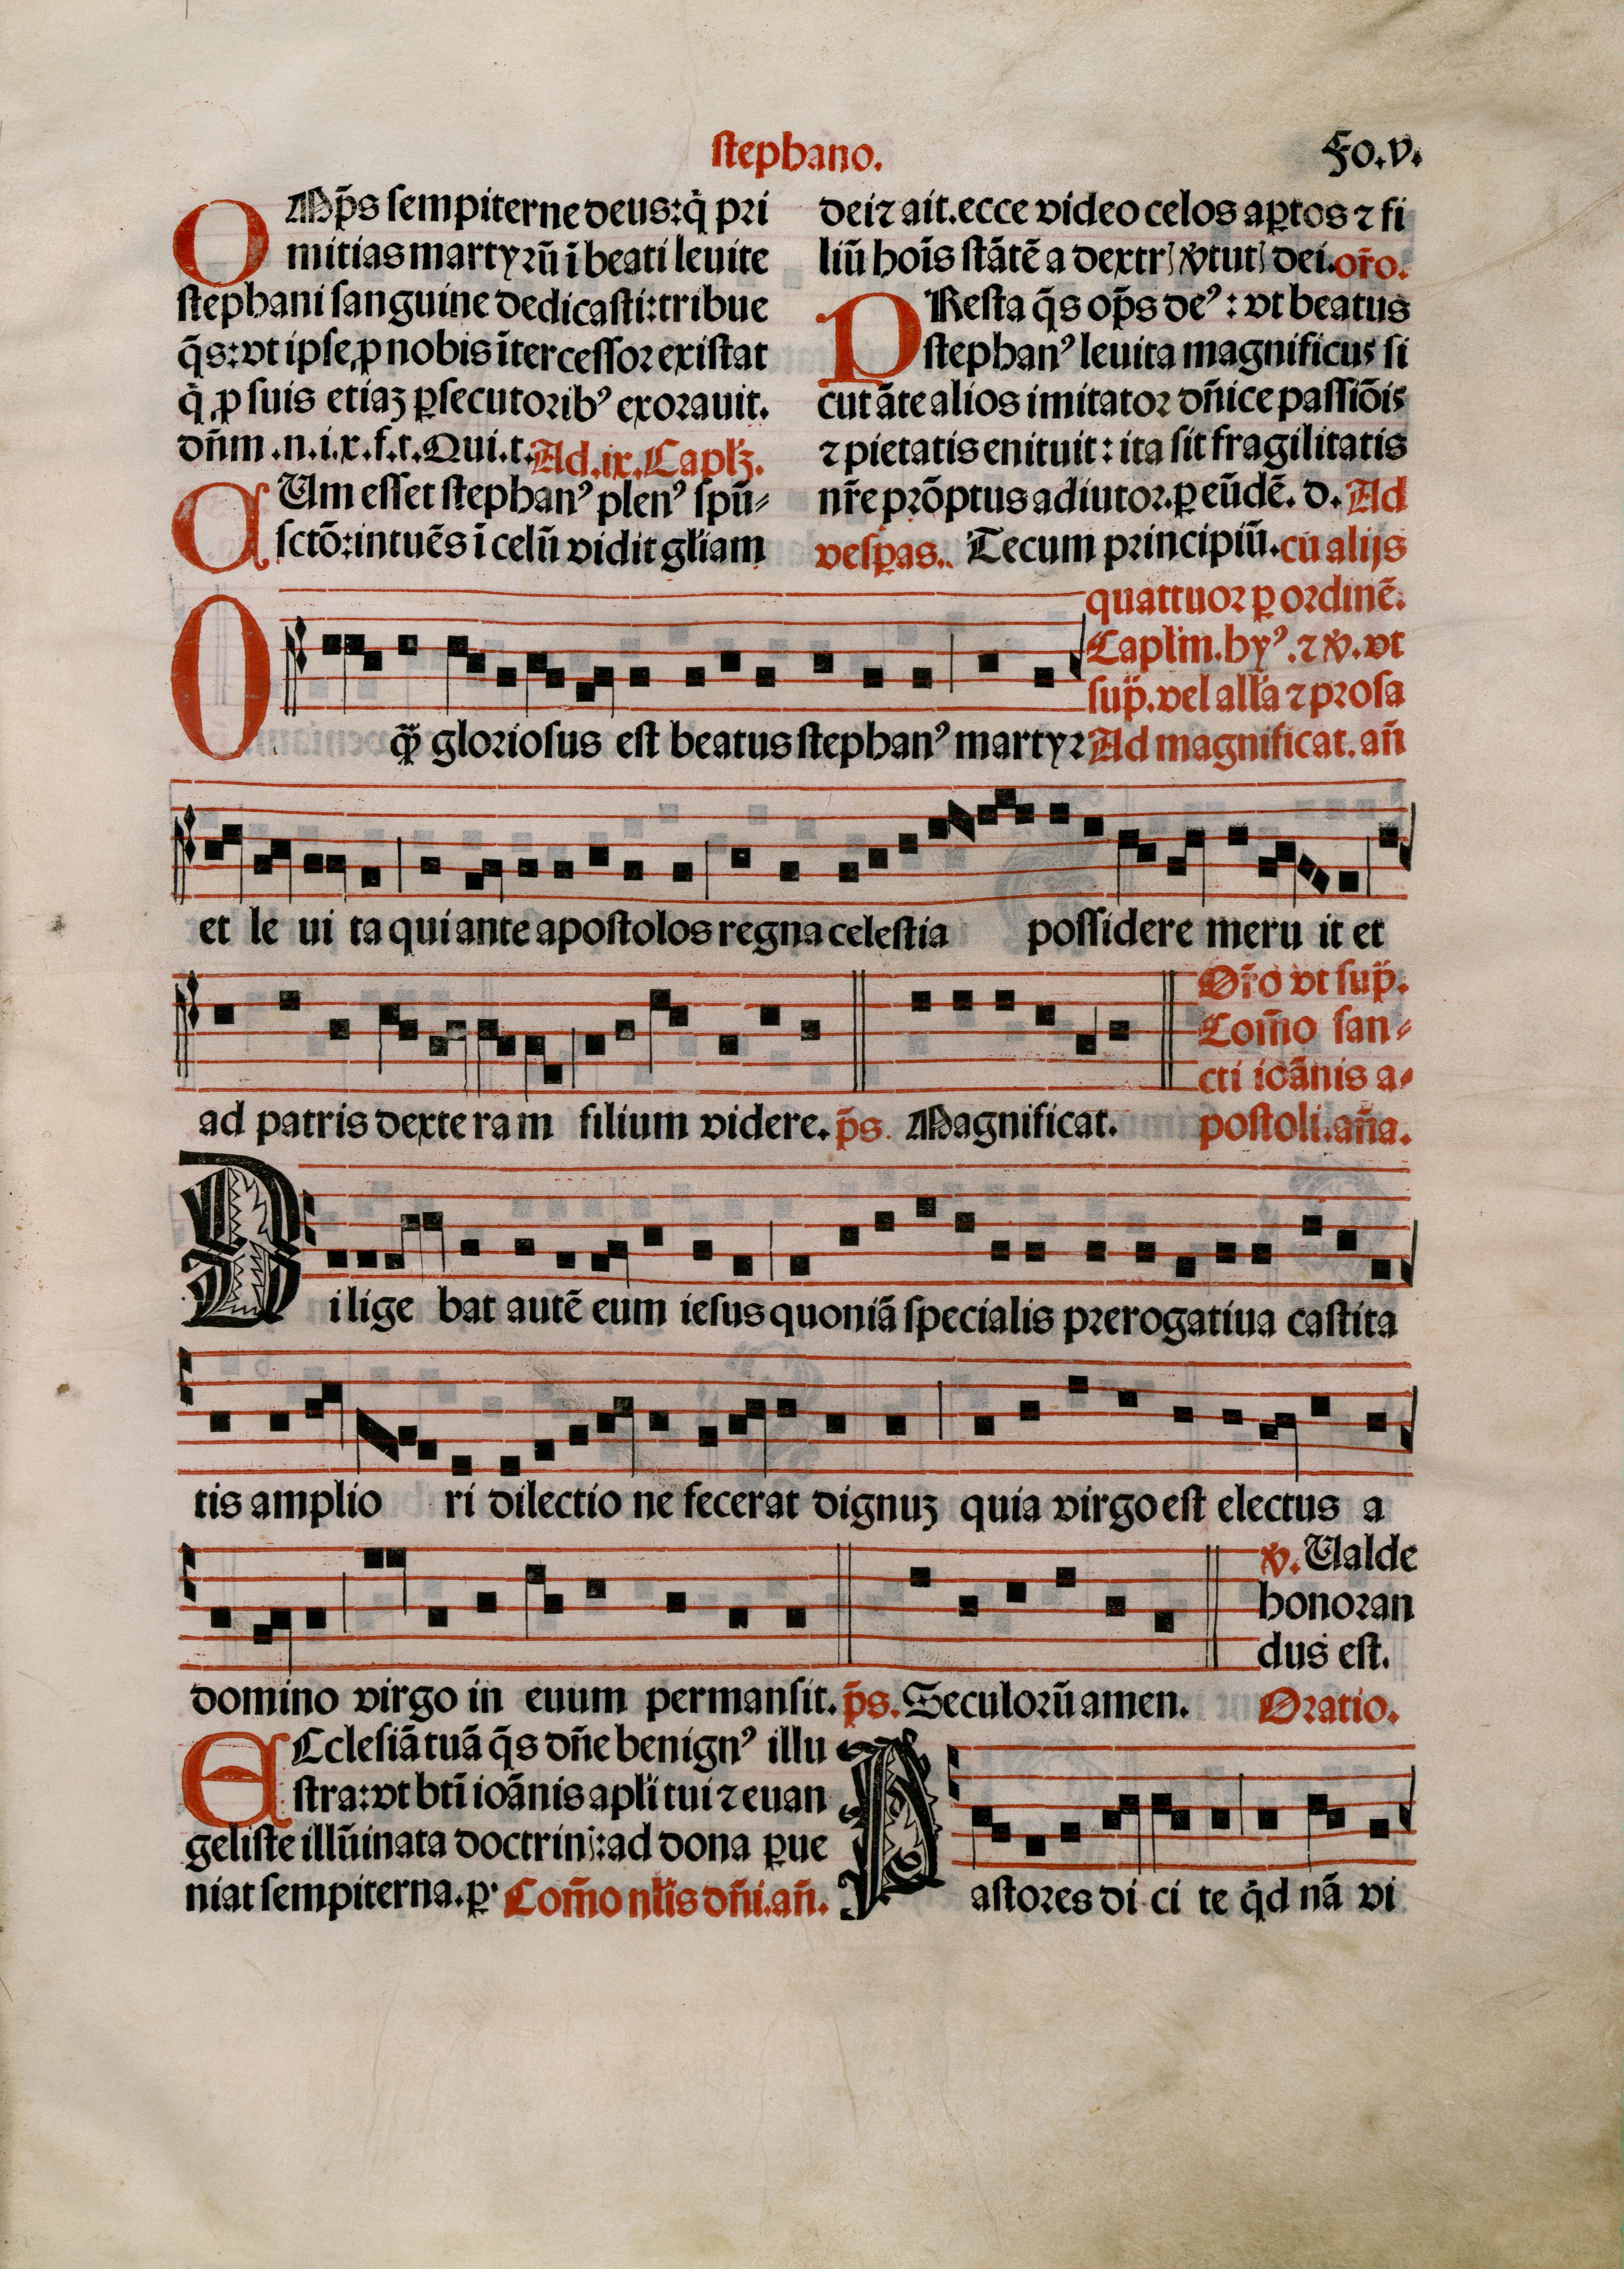 stephano.
Fo.v.
OMp̄s sempiterne deus:q̇ pri
mitias martyrū ī beati leuite
stephani sanguine dedicasti:tribue
q̄s:vt ipse ꝓ nobis ītercessor existat
q̇ ꝓ suis etiaꝫ ꝑsecutoribꝰ exorauit.
dn̄m .n.i.x.f.t.Qui.t.Ad.ix.Capl'ꝫ.
CUm esset stephanꝰ plenꝰ spū⸗
sctō:intuēs ī celū vidit gl'iam
dei⁊ ait.ecce video celos aꝑtos ⁊ fi
liū hoīs stātē a dextr̨ v̇tut̨ dei.or̄o.
PResta q̄s op̄s deꝰ : vt beatus
stephanꝰ leuita magnificus si
cut āte alios imitator dn̄ice passiōis
⁊ pietatis enituit: ita sit fragilitatis
nr̄e prōptus adiutor.ꝑ eūdē. d. Ad
vesꝑas. Tecum principiū.cū alijs
quattuor ꝑ ordinē.
Capl'm.hyꝰ.⁊ v̇. vt
sup̄. vel all'a ⁊ prosa
O q̄ gloriosus est beatus stephanꝰ martyr Ad magnificat. an̄
et le ui ta qui ante apostolos regna celestia possidere meru it et
Or̄o vt sup̄.
Com̄o san⸗
cti ioānis a⸗
ad patris dexte ra m filium videre. p̄s. Magnificat. postoli.an̄a.
Dilige bat autē eum iesus quoniā specialis prerogatiua castita
tis amplio ri dilectio ne fecerat dignuꝫ quia virgo est electus a
v̇. Ualde
honoran
dus est.
domino virgo in euum permansit. p̄s. Seculorū amen. Oratio.
ECclesiā tuā q̄s dn̄e benignꝰ illu
stra:vt btī ioānis apl'i tui ⁊ euan
geliste illūinata doctrinis:ad dona ꝑue
niat sempiterna.ꝑ. Com̄o nl'is dn̄i.an̄.
Pastores di ci te q̇d nā vi